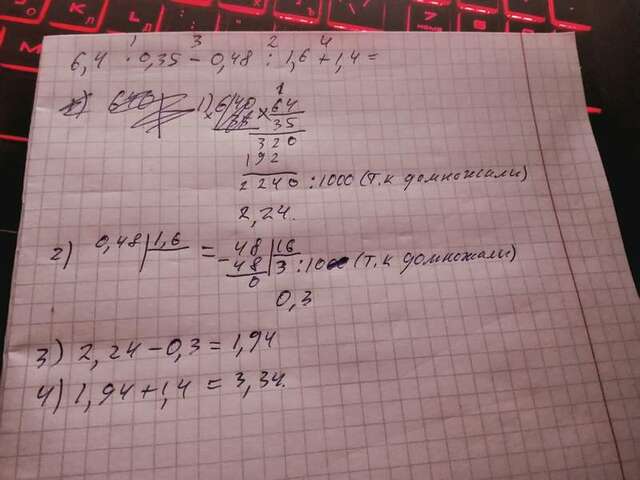 1 3 2 4
6,4 · 0,35 - 0,48 : 1,6 + 1,4 =
1) 64
× 35
320
192
2240 : 1000 (т.к домножали)
2,24.
2) 0,48 | 1,6 = 48 | 16
- 48 3 : 10 (т.к домножали)
0
0,3
3) 2,24 - 0,3 = 1,94
4) 1,94 + 1,4 = 3,34.